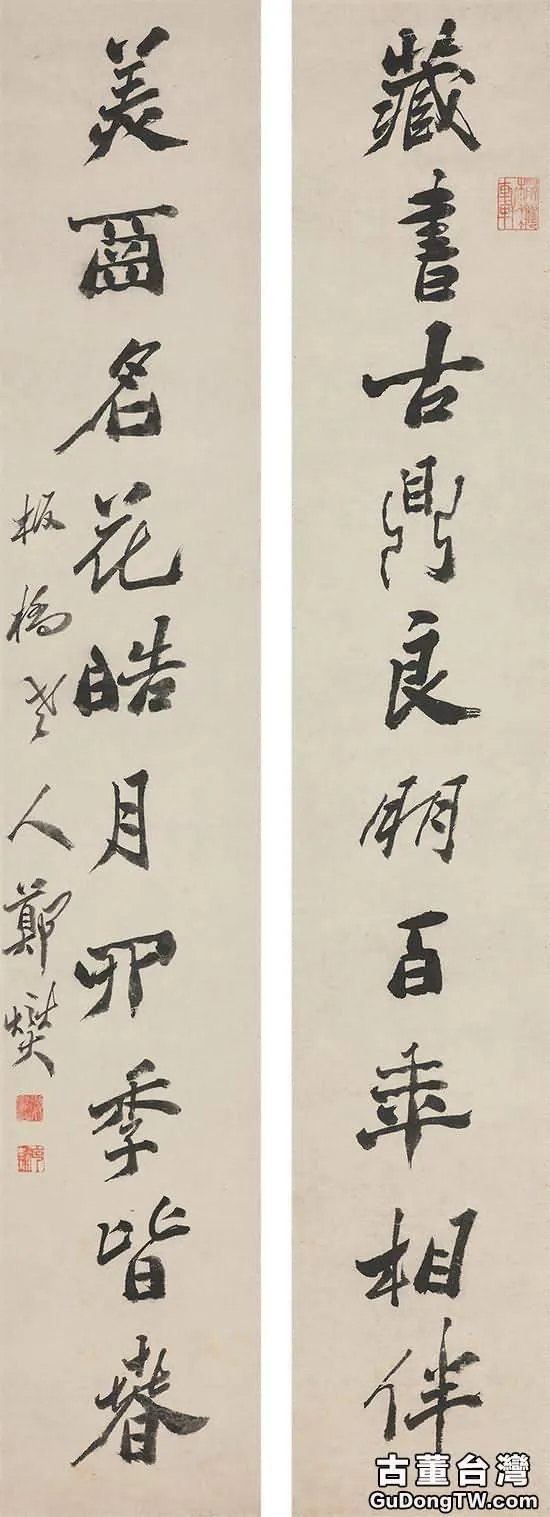 藏書古鼎良朋百年相伴
美酉名花皓月四季皆春
板橋老人鄭燮
古董台灣
GuDongTW.com